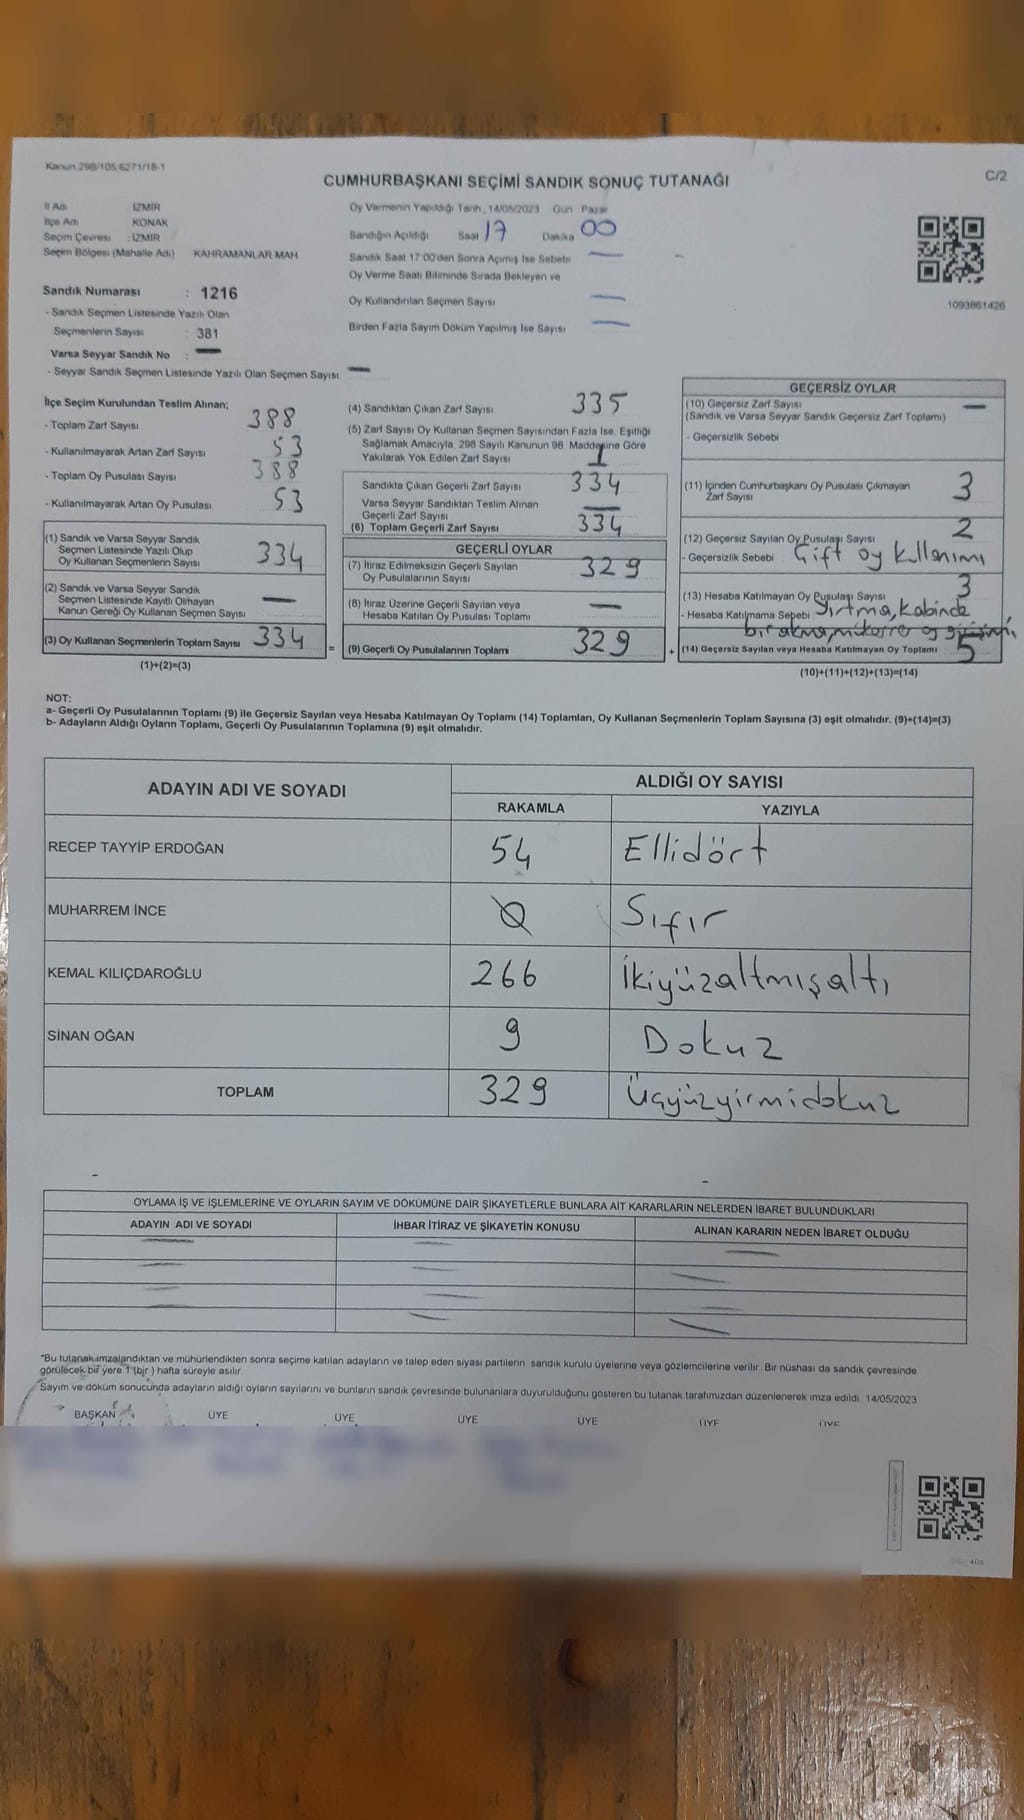 Kanun 298/105,6271/18-1
C/2
CUMHURBAŞKANI SEÇİMİ SANDIK SONUÇ TUTANAĞI
İl Adı İZMİR
İlçe Adı KONAK
Seçim Çevresi : İZMİR
Seçim Bölgesi (Mahalle Adı) KAHRAMANLAR MAH
Sandık Numarası : 1216
- Sandık Seçmen Listesinde Yazılı Olan
Seçmenlerin Sayısı : 381
Varsa Seyyar Sandık No : —
- Seyyar Sandık Seçmen Listesinde Yazılı Olan Seçmen Sayısı —
Oy Vermenin Yapıldığı Tarih, 14/05/2023 Gün Pazar
Sandığın Açıldığı Saat 17 Dakika 00
Sandık Saat 17:00'den Sonra Açımış İse Sebebi —
Oy Verme Saati Bitiminde Sırada Bekleyen ve
Oy Kullandırılan Seçmen Sayısı —
Birden Fazla Sayım Döküm Yapılmış İse Sayısı —
1093861426
İlçe Seçim Kurulundan Teslim Alınan;
- Toplam Zarf Sayısı 388
- Kullanılmayarak Artan Zarf Sayısı 53
- Toplam Oy Pusulası Sayısı 388
- Kullanılmayarak Artan Oy Pusulası 53
(1) Sandık ve Varsa Seyyar Sandık
Seçmen Listesinde Yazılı Olup
Oy Kullanan Seçmenlerin Sayısı 334
(2) Sandık ve Varsa Seyyar Sandık
Seçmen Listesinde Kayıtlı Olmayan
Kanun Gereği Oy Kullanan Seçmen Sayısı —
(3) Oy Kullanan Seçmenlerin Toplam Sayısı 334 =
(1)+(2)=(3)
(4) Sandıktan Çıkan Zarf Sayısı 335
(5) Zarf Sayısı Oy Kullanan Seçmen Sayısından Fazla İse, Eşitliği
Sağlamak Amacıyla, 298 Sayılı Kanunun 98 Maddesine Göre
Yakılarak Yok Edilen Zarf Sayısı 1
Sandıkta Çıkan Geçerli Zarf Sayısı 334
Varsa Seyyar Sandıktan Teslim Alınan
Geçerli Zarf Sayısı —
(6) Toplam Geçerli Zarf Sayısı 334
GEÇERLİ OYLAR
(7) İtiraz Edilmeksizin Geçerli Sayılan
Oy Pusulalarının Sayısı 329
(8) İtiraz Üzerine Geçerli Sayılan veya
Hesaba Katılan Oy Pusulası Toplamı —
(9) Geçerli Oy Pusulalarının Toplamı 329 +
GEÇERSİZ OYLAR
(10) Geçersiz Zarf Sayısı —
(Sandık ve Varsa Seyyar Sandık Geçersiz Zarf Toplamı)
- Geçersizlik Sebebi
(11) İçinden Cumhurbaşkanı Oy Pusulası Çıkmayan
Zarf Sayısı 3
(12) Geçersiz Sayılan Oy Pusulası Sayısı 2
- Geçersizlik Sebebi Çift oy kullanımı
(13) Hesaba Katılmayan Oy Pusulası Sayısı 3
- Hesaba Katılmama Sebebi Yırtma, kabinde
bırakma, oy
(14) Geçersiz Sayılan veya Hesaba Katılmayan Oy Toplamı 5
(10)+(11)+(12)+(13)=(14)
NOT:
a- Geçerli Oy Pusulalarının Toplamı (9) ile Geçersiz Sayılan veya Hesaba Katılmayan Oy Toplamı (14) Toplamları, Oy Kullanan Seçmenlerin Toplam Sayısına (3) eşit olmalıdır. (9)+(14)=(3)
b- Adayların Aldığı Oyların Toplamı, Geçerli Oy Pusulalarının Toplamına (9) eşit olmalıdır.
ADAYIN ADI VE SOYADI ALDIĞI OY SAYISI
RAKAMLA YAZIYLA
RECEP TAYYİP ERDOĞAN 54 Ellidört
MUHARREM İNCE 0 Sıfır
KEMAL KILIÇDAROĞLU 266 İkiyüzaltmışaltı
SİNAN OĞAN 9 Dokuz
TOPLAM 329 Üçyüzyirmidokuz
OYLAMA İŞ VE İŞLEMLERİNE VE OYLARIN SAYIM VE DÖKÜMÜNE DAİR ŞİKAYETLERLE BUNLARA AİT KARARLARIN NELERDEN İBARET BULUNDUKLARI
ADAYIN ADI VE SOYADI İHBAR İTİRAZ VE ŞİKAYETİN KONUSU ALINAN KARARIN NEDEN İBARET OLDUĞU
*Bu tutanak imzalandıktan ve mühürlendikten sonra seçime katılan adayların ve talep eden siyasi partilerin sandık kurulu üyelerine veya gözlemcilerine verilir Bir nüshası da sandık çevresinde
görülecek bir yere 1 (bir ) hafta süreyle asılır
Sayım ve döküm sonucunda adayların aldığı oyların sayılarını ve bunların sandık çevresinde bulunanlara duyurulduğunu gösteren bu tutanak tarafımızdan düzenlenerek imza edildi 14/05/2023
BAŞKAN ÜYE ÜYE ÜYE ÜYE ÜYE ÜYE